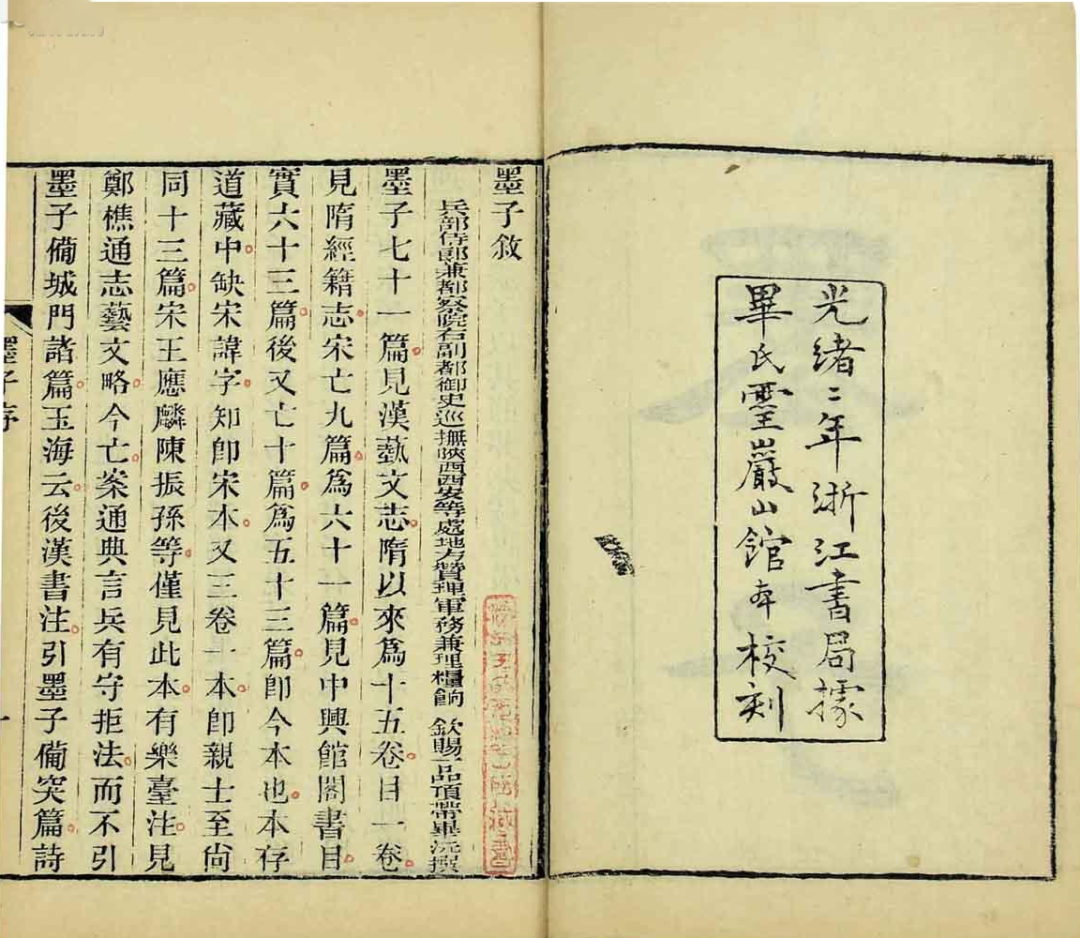 光緒二年浙江書局據
畢氏靈巖山館本校刻
墨子敘
兵部侍郎兼都察院右副都御史巡撫陝西西安等處地方贊理軍務兼理糧餉 欽賜一品頂帶畢沅撰
墨子七十一篇見漢藝文志隋以來爲十五卷目一卷
見隋經籍志宋亡九篇爲六十一篇見中興館閣書目
實六十三篇後又亡十篇爲五十三篇卽今本也本存
道藏中缺宋諱字知卽宋本又三卷一本卽親士至尙
同十三篇宋王應麟陳振孫等僅見此本有樂臺注見
鄭樵通志藝文略今亡案通典言兵有守拒法而不引
墨子備城門諸篇玉海云後漢書注引墨子備突篇詩
墨子序
一